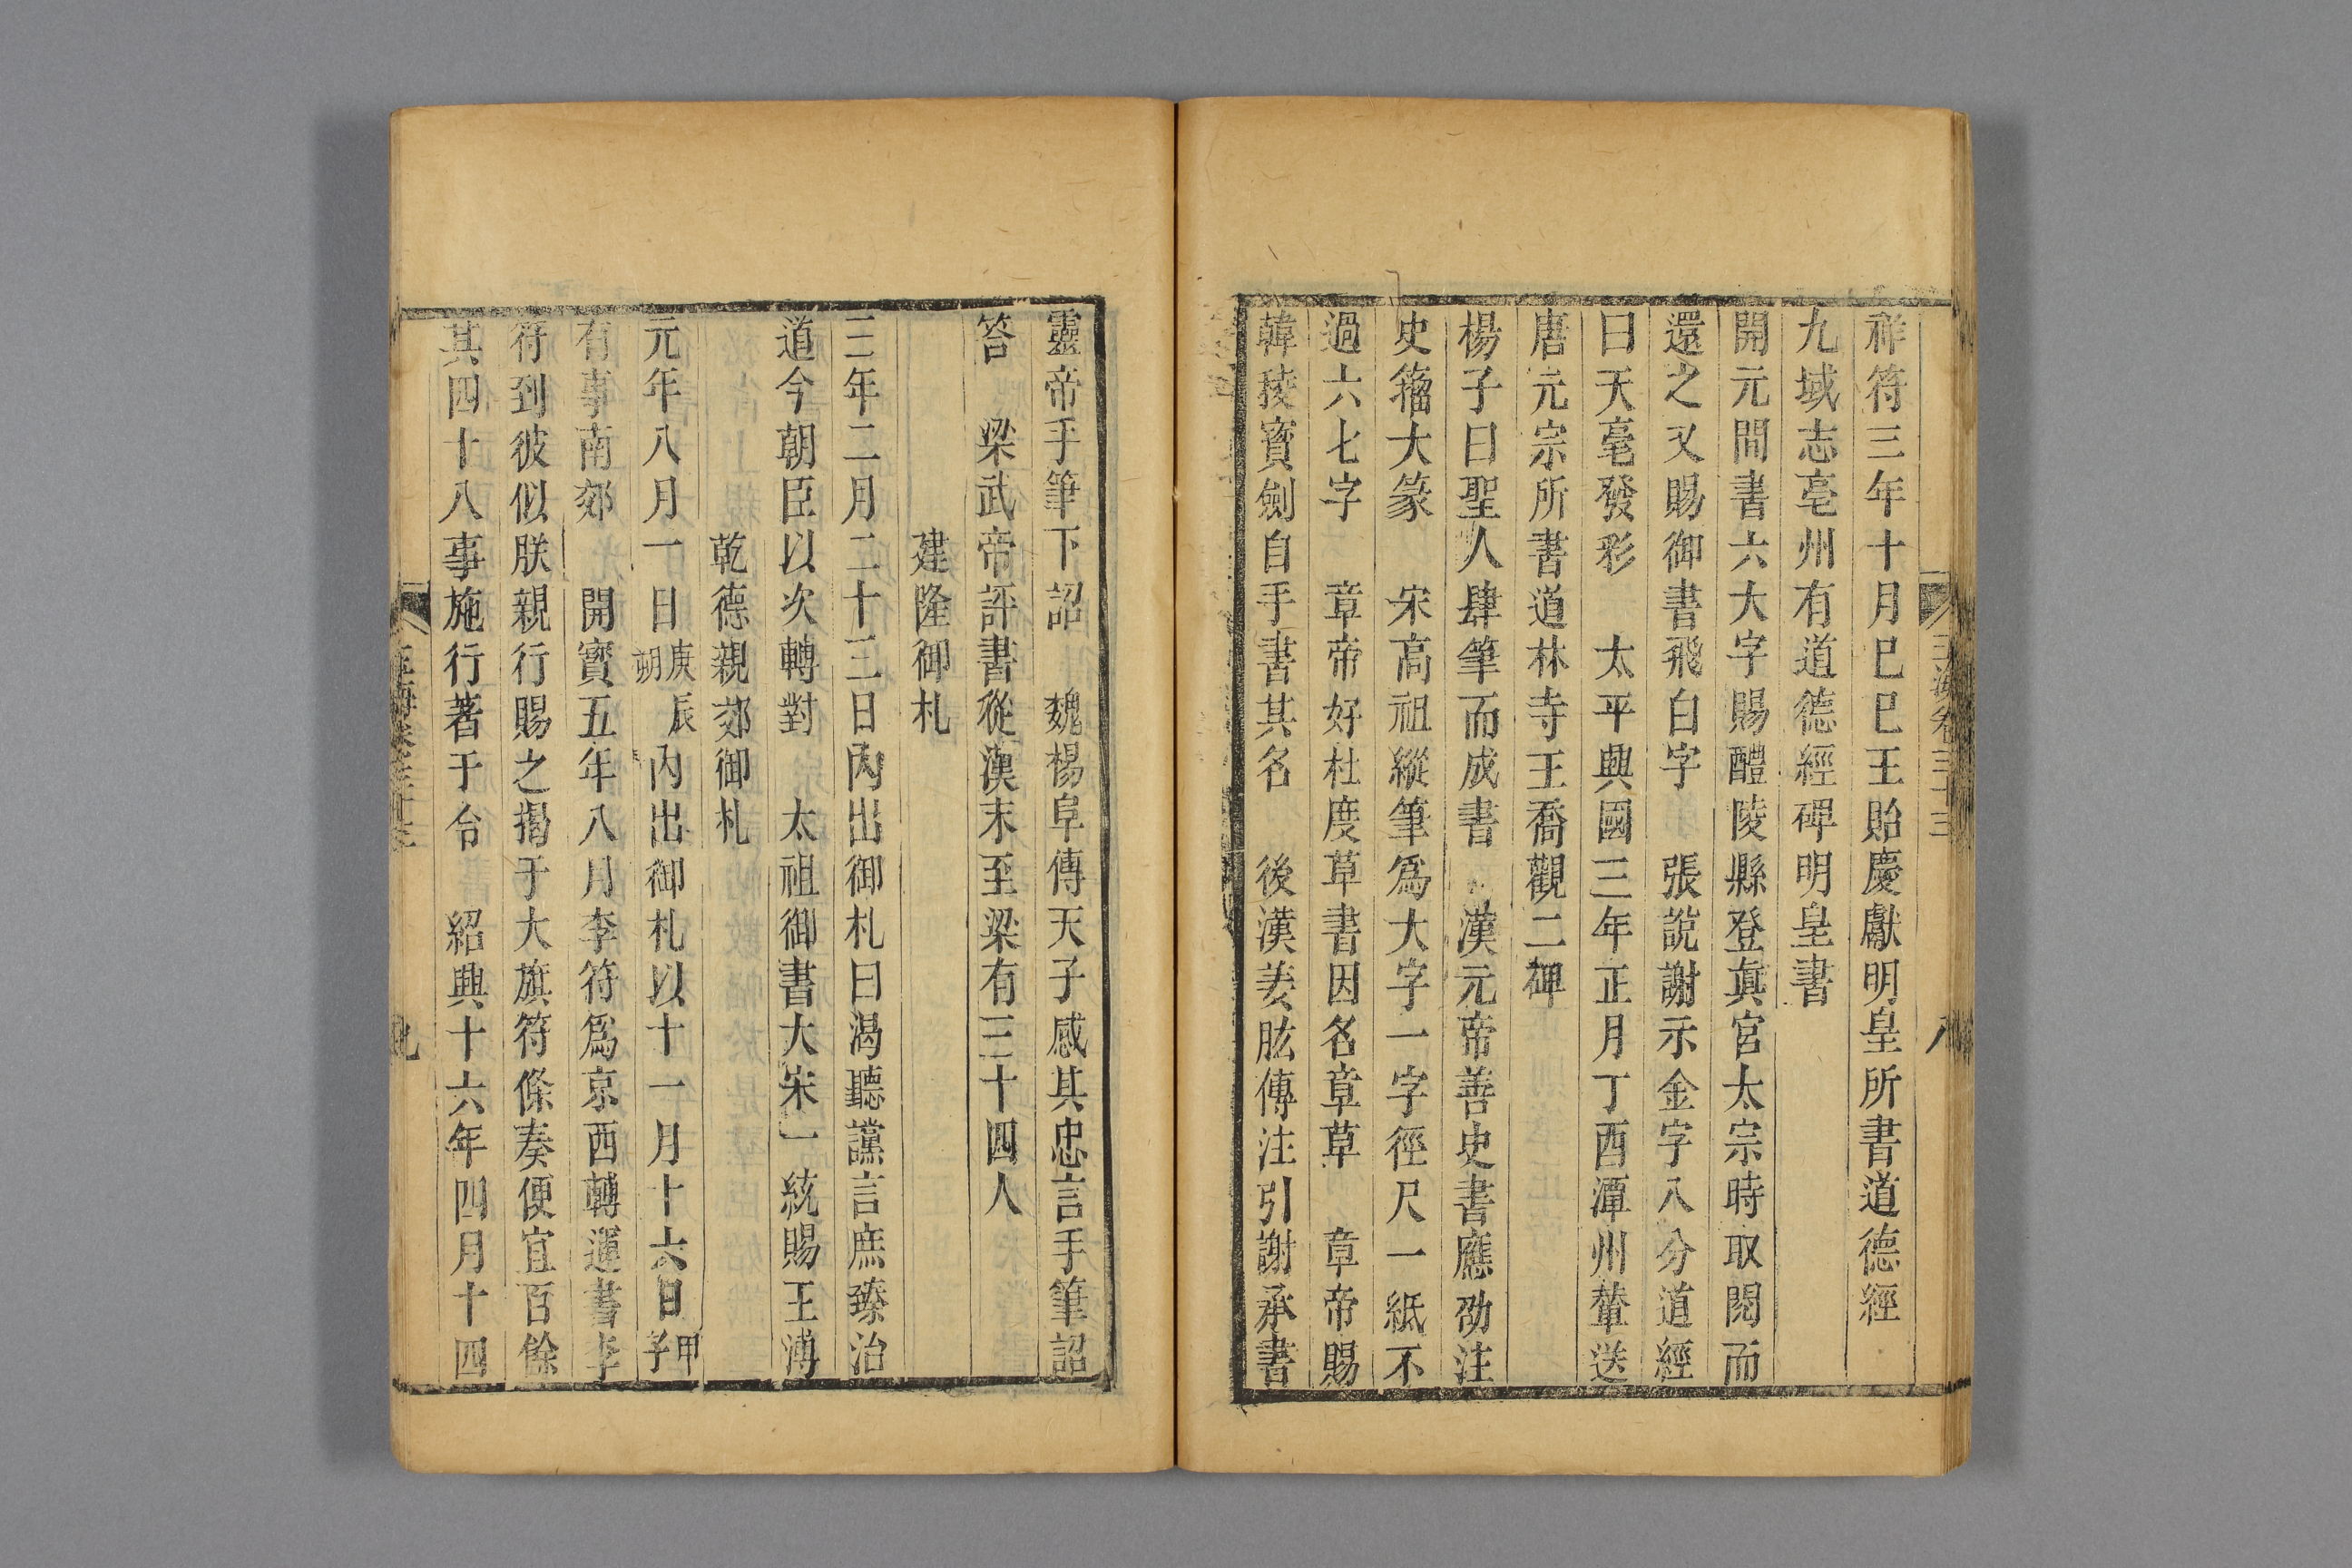 玉海卷三十三　八
祥符三年十月己巳王貽慶獻明皇所書道德經
九域志亳州有道德經碑明皇書
開元間書六大字賜醴陵縣登眞宮太宗時取閱而
還之又賜御書飛白字　張說謝示金字八分道經
曰天毫發彩　太平興國三年正月丁酉潭州輦送
唐元宗所書道林寺王喬觀二碑
楊子曰聖人肆筆而成書　漢元帝善史書應劭注
史籀大篆　宋高祖縱筆爲大字一字徑尺一紙不
過六七字　章帝好杜度草書因名章草　章帝賜
韓稜寶劍自手書其名　後漢姜肱傳注引謝承書
靈帝手筆下詔　魏楊阜傳天子感其忠言手筆詔
答　梁武帝評書從漢末至梁有三十四人
建隆御札
三年二月二十三日內出御札曰渴聽讜言庶臻治
道今朝臣以次轉對　太祖御書大宋一統賜王溥
乾德親郊御札
元年八月一日庚辰朔內出御札以十一月十六日甲子
有事南郊　開寶五年八月李符爲京西轉運書李
符到彼似朕親行賜之揭于大旗符條奏便宜百餘
其四十八事施行著于令　紹興十六年四月十四
玉海卷三十三　九